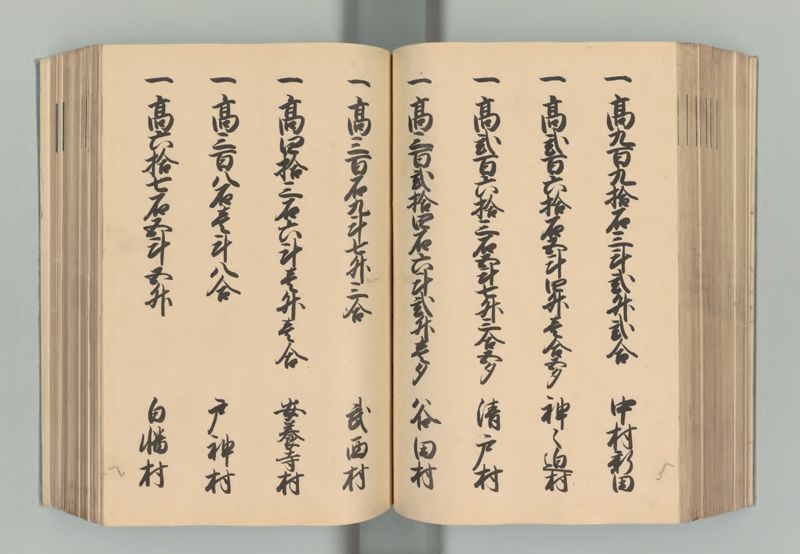 一高九百九拾石三斗弐升弐合 中村新田
一高弐百六拾石五斗四升壱合五夕 神々廻村
一高弐百六拾三石五斗七升三合五夕 清戸村
一高三百弐拾四石六斗弐升壱夕 谷田村
一高三百石九斗七升三合 武西村
一高四拾三石六斗壱升壱合 安養寺村
一高三百八石壱斗八合 戸神村
一高六拾七石五斗五升 白幡村